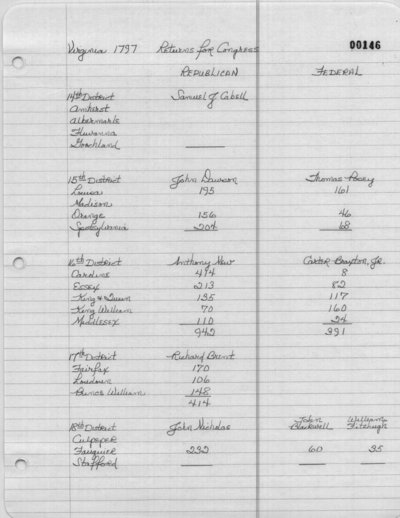 Virginia 1797 Returns for Congress 00146
REPUBLICAN FEDERAL
14th District Samuel J Cabell
Amherst
Albermarle
Fluvanna
Goochland
15th District John Dawson Thomas Posey
Louisa 195 161
Madison
Orange 156 46
Spotsylvania 204 68
16th District Anthony New Carter Braxton, Jr.
Caroline 414 8
Essex 213 82
King & Queen 135 117
King William 70 160
Middlesex 110 24
942 391
17th District Richard Brent
Fairfax 170
Loudoun 106
Prince William 148
414
18th District John Nicholas John Blackwell William Fitzhugh
Culpeper
Fauquier 232 60 35
Stafford